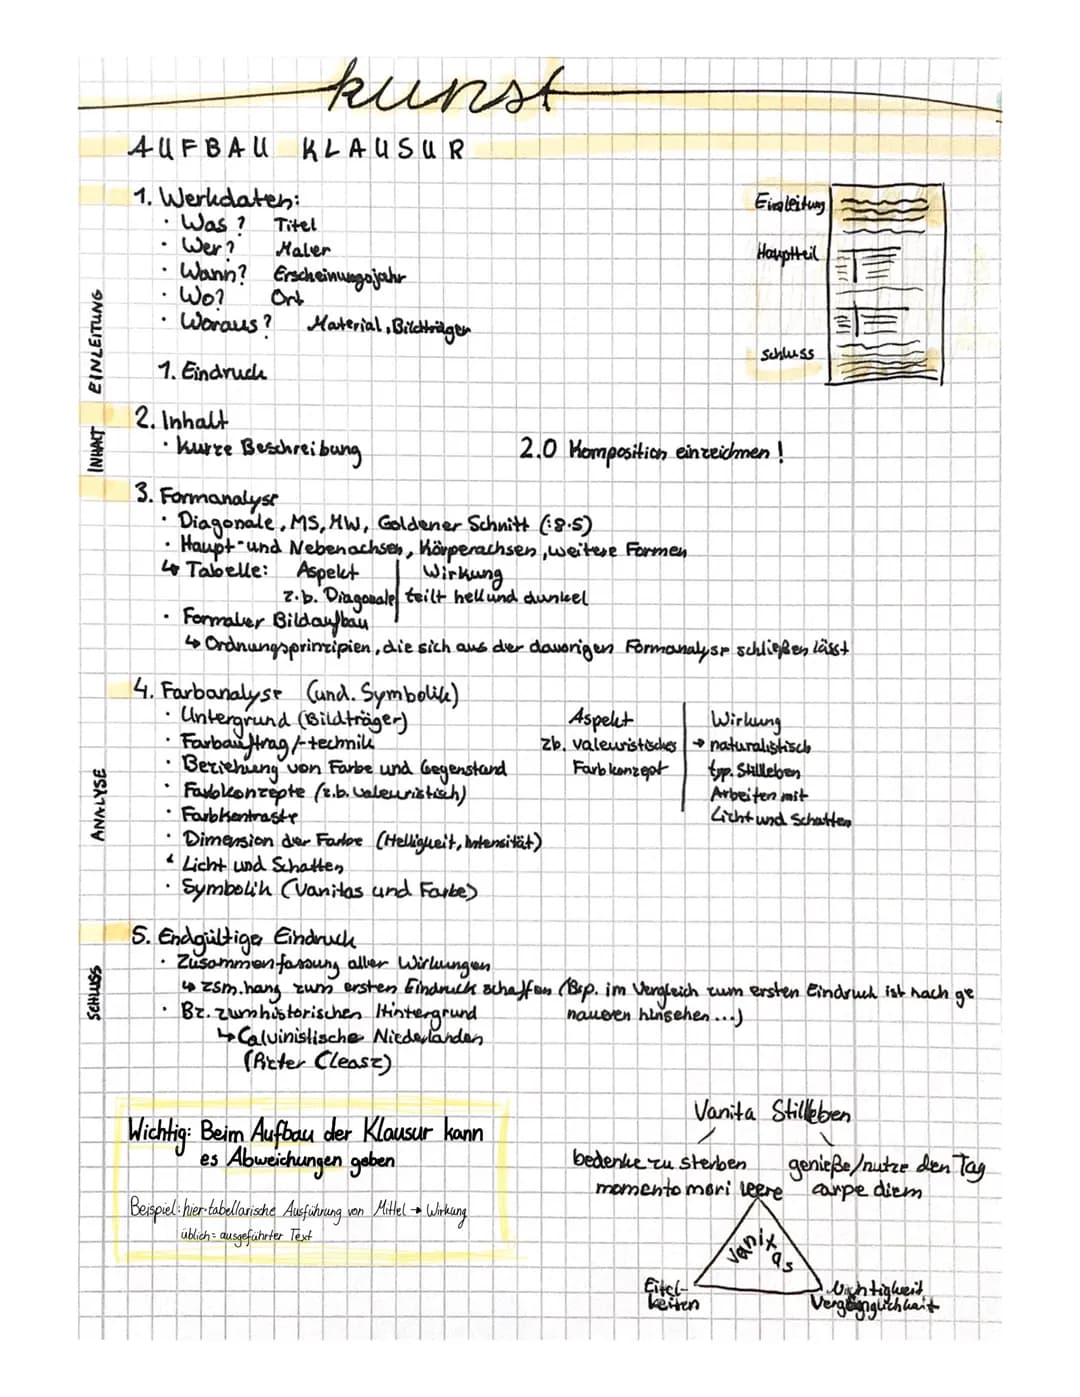 kunst
AUFBAU KLAUSUR
1. Werkdaten:
· Was? Titel
· Wer? Maler
· Wann? Erscheinungsjahr
· Wo? Ort
· Woraus? Material, Bildträger
1. Eindruck
EINLEITUNG
Einleitung
Hauptteil
Schluss
2. Inhalt
· kurze Beschreibung
INHALT
2.0 Komposition einzeichnen!
3. Formanalyse
· Diagonale, MS, MW, Goldener Schnitt (:8·5)
· Haupt- und Nebenachsen, Körperachsen, weitere Formen
↳ Tabelle: Aspekt | Wirkung
z.b. Diagonale | teilt hell und dunkel
· Formaler Bildaufbau
↳ Ordnungsprinzipien, die sich aus der davorigen Formanalyse schließen lässt
4. Farbanalyse (und. Symbolik)
· Untergrund (Bildträger)
· Farbauftrag/-technik
· Beziehung von Farbe und Gegenstand
· Farbkonzepte (z.b. valeuristisch)
· Farbkontraste
· Dimension der Farbe (Helligkeit, Intensität)
· Licht und Schatten
· Symbolik (Vanitas und Farbe)
ANALYSE
Aspekt | Wirkung
zb. valeuristisches | → naturalistisch
Farbkonzept | typ. Stillleben
Arbeiten mit
Licht und Schatten
5. Endgültiger Eindruck
· Zusammenfassung aller Wirkungen
↳ zsm.hang zum ersten Eindruck schaffen (Bsp. im Vergleich zum ersten Eindruck ist nach ge
naueren hinsehen...)
· Bz. zum historischen Hintergrund
↳ Calvinistische Niederlanden
(Pieter Cleasz)
SCHLUSS
Wichtig: Beim Aufbau der Klausur kann
es Abweichungen geben
Beispiel: hier tabellarische Ausführung von Mittel → Wirkung
üblich = ausgeführter Text
Vanita Stillleben
bedenke zu sterben genieße/nutze den Tag
momento mori carpe diem
leere
Vanitas
Eitel-
keiten
Nichtigkeit
Vergänglichkeit